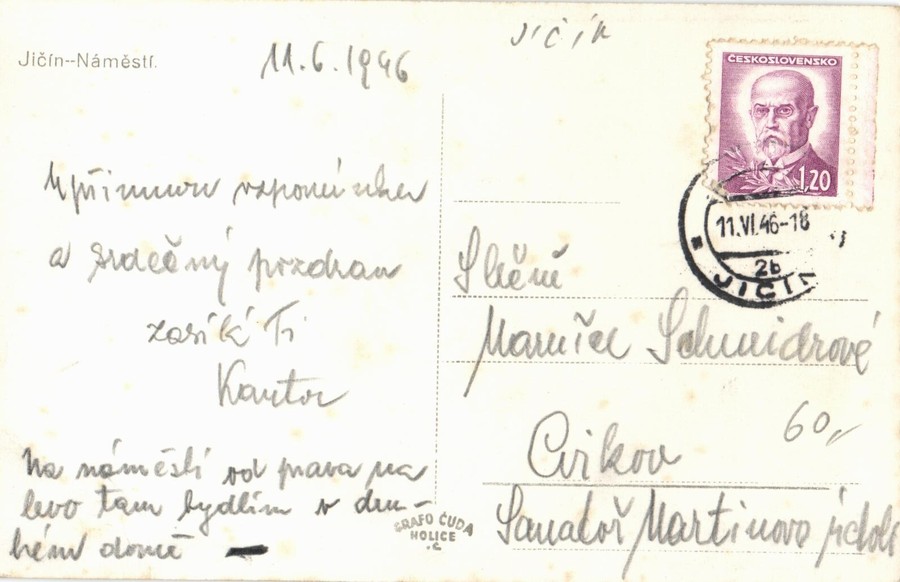 Jičín--Náměstí.
11.6.1946
Jičín
ČESKOSLOVENSKO
1,20
11.VI.46-18
2b
JIČÍN
Upřímnou vzpomínku
a srdečný pozdrav
zasílá Ti
Kantor
Na náměstí od prava na
levo tam bydlím v dru-
hém domě
Slečně
Mařičce Schneidrové
Cvikov
60,-
Sanatoř Martinovo údolí
GRAFO ČUDA
HOLICE
.C